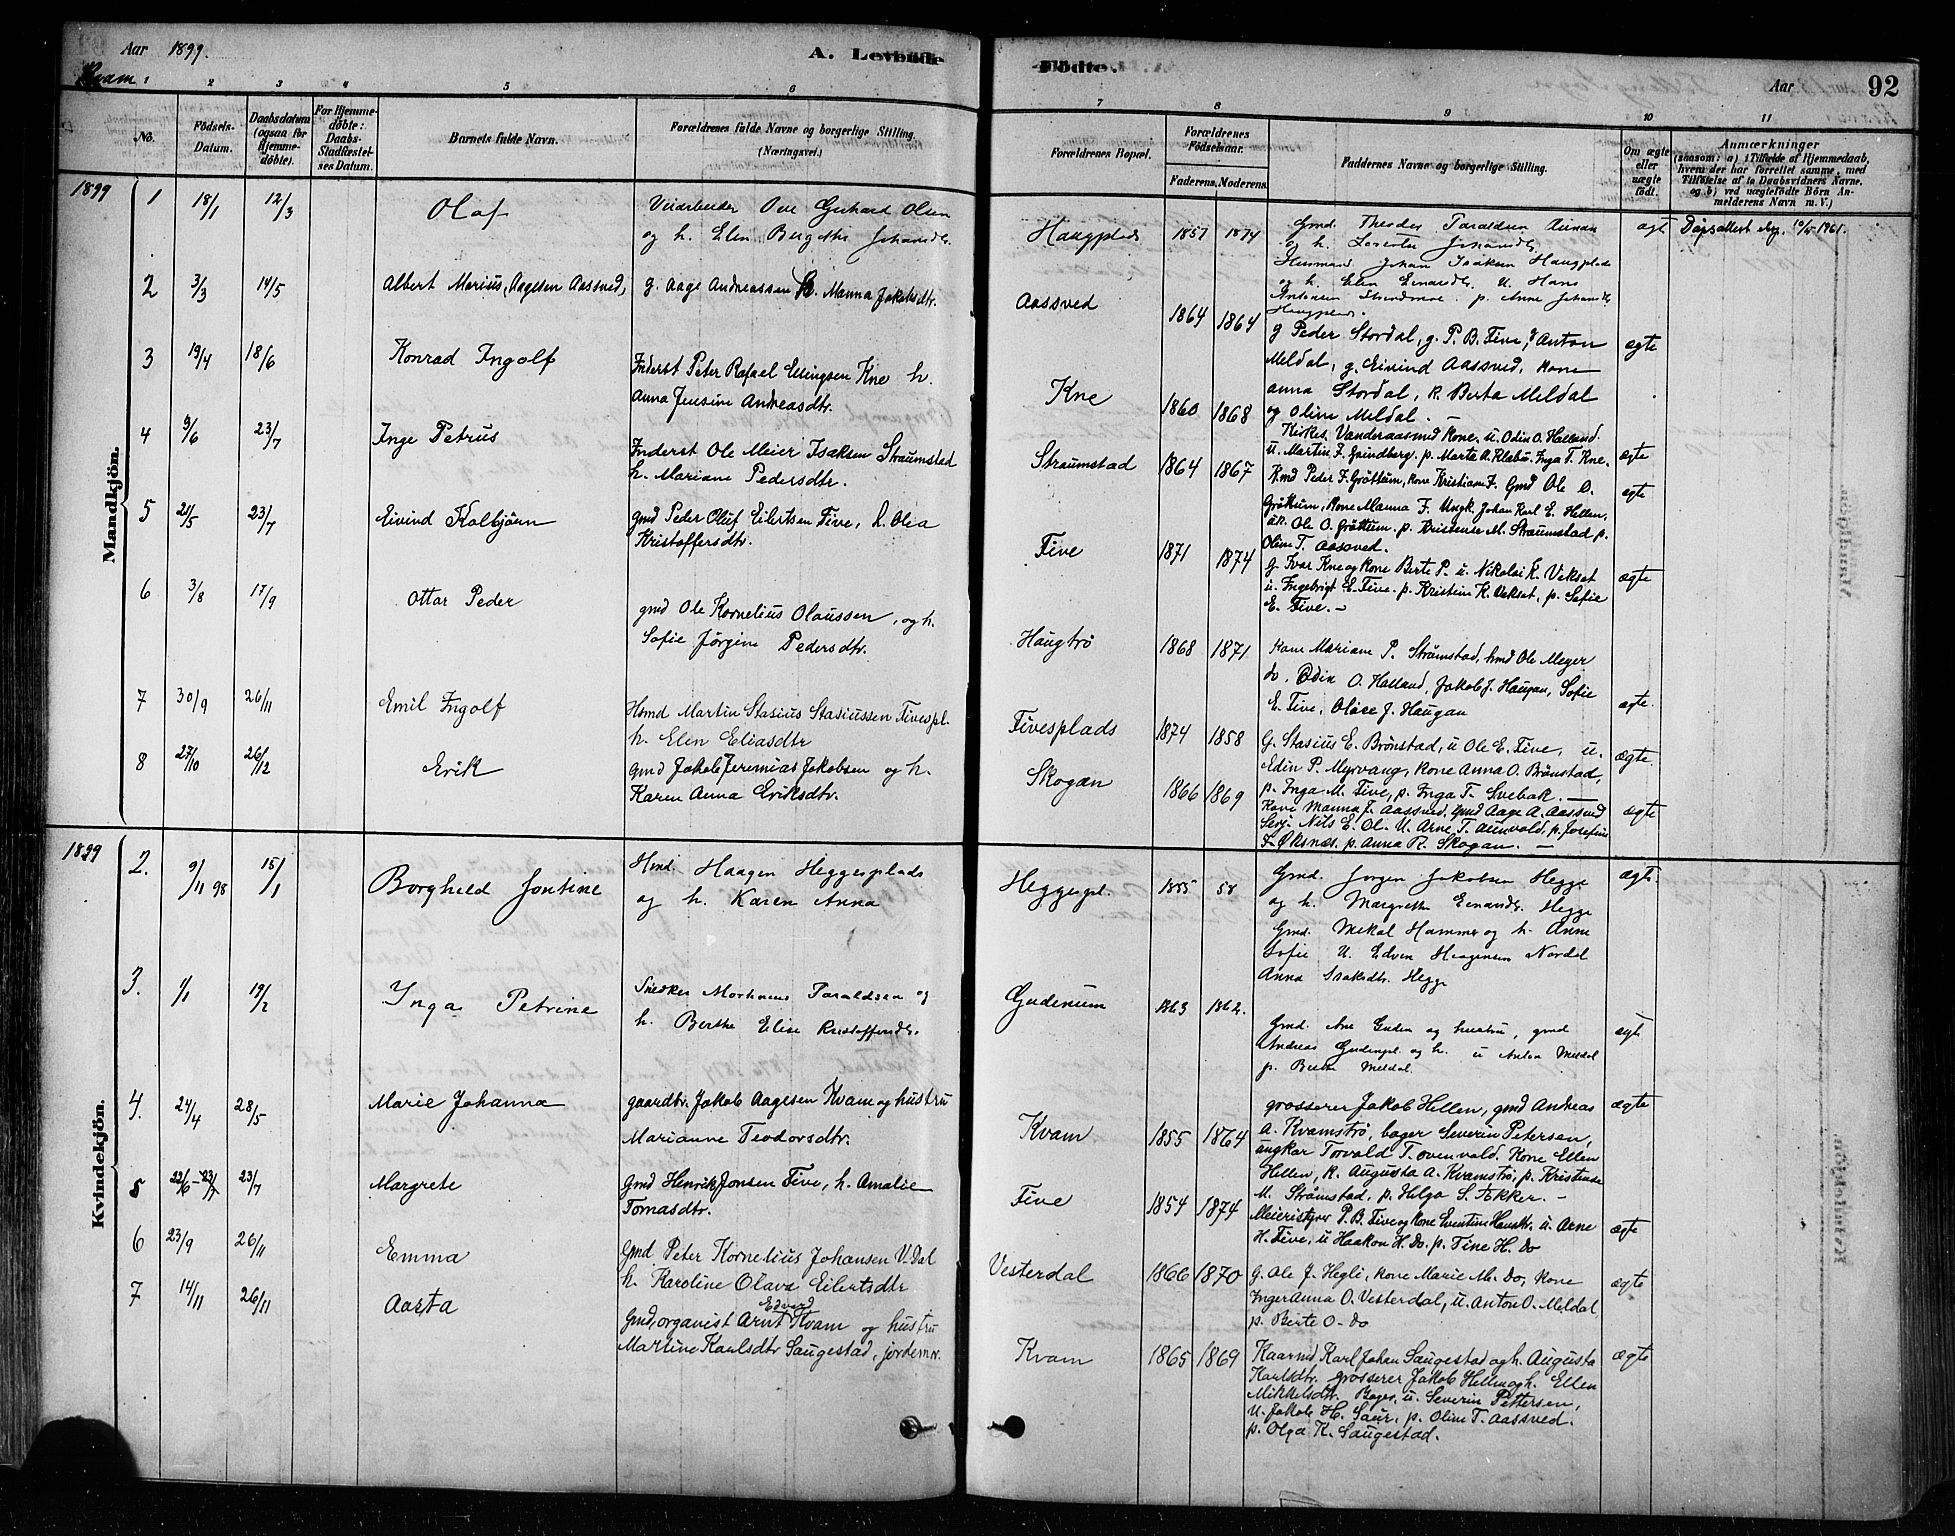 Aar 1899. A. Levende Fødte. Aar 92
Kvam
1 2 3 4 5 6 7 8 9 10 11
No.
Fødsels-
Datum.
Daabsdatum
(ogsaa for
Hjemme-
døbte).
For Hjemme-
døbte:
Daabs-
Stadfæstel-
ses Datum.
Barnets fulde Navn.
Forældrenes fulde Navne og borgerlige Stilling.
(Næringsvei.)
Forældrenes Bopæl.
Forældrenes
Fødselsaar.
Faderens. Moderens.
Faddernes Navne og borgerlige Stilling.
Om ægte
eller
uægte
født.
Anmærkninger
(saasom: a) i Tilfælde af Hjemmedaab,
hvem der har forrettet samme, med
Tilføielse af to Daabsvidners Navne,
og b) ved uægtefødte Børn An-
melderens Navn m. V.)
Mandkjön.
1899
1 18/1 12/3 Olaf
Ove Gerhard Olsen
og h. Elen Bergitte Johansdtr.
Haugplads 1857 1874
Gmd. Theodor Taraldsen Aunan
og h. Lorentse Johansdtr.
Husmand Johan Isaksen Haugplads
og h. Elen Einarsdtr. U. Hans
Antonsen Strindmoe p. Anne Johansdtr.
Haugplads.
ægt Dåpsattest
2 3/3 14/5 Albert Marius, (Aagesen Aassved)
g. Aage Andreassen h. Manna Jakobsdtr.
Aassved 1864 1864
g Peder Stordal, g. P. B. Five, g Anton
Meldal, g. Eivind Aassved, kone
anna Stordal, k. Berta Meldal
og Oline Meldal. -
ægte
3 19/4 18/6 Konrad Ingolf
Inderst Peter Rafael Ellingsen Kne h.
Anna Jensine Andreasdtr.
Kne 1860 1868
Kirkes. Vanderaasmed kone. u. Odin O. Halland.
u. Martin F. Grindberg. p. Marta A. Klabu. Inga T. Kne.
ægte
4 9/6 23/7 Inge Petrus
Inderst Ole Meier Isaksen Straumstad
h. Mariane Pedersdtr.
Straumstad 1864 1867
Kmd Peder F. Gröttum, kone Kristiane F. Gmd Ole O.
Gröttum, Kone Manna F. Ungk. Johan Karl E. Hellen,
Ole O. Gröttum. p. Kristense M. Straumstad p.
Oline T. Aassved.
ægte
5 21/5 23/7 Eivind Kolbjörn
gmd Peder Oluf Eilertsen Five, h. Olea
Kristoffersdtr.
Five 1871 1874
g. Ivar Kne og kone Berte P. u. Nikolai K. Veksat
u. Ingebrigt E. Five. p. Kristine K. Veksat, p. Sofie
E. Five. -
ægte
6 3/8 17/9 Ottar Peder
gmd Ole Kornelius Olaussen, og h.
Sofie Jörgine Pedersdtr.
Haugtrø 1868 1871
Kone Mariane P. Strømstad, hmd Ole Meyer
do, Odin O. Halland, Jakob J. Haugan, Sofie
E. Five, Oluve J. Haugan
ægte.
7 30/9 26/11 Emil Ingolf
Hsmd Martin Stasius Stasiussen Fivespl.
h. Elen Eliasdtr
Fivesplads 1874 1858
G. Stasius E. Brønstad, u Ole E. Five, u.
Edin P. Myrvang, kone Anna O. Brønstad,
p. Inga M. Five, p. Inga T. Svebak. -
ægte.
8 27/10 26/12 Erik
gmd Jakob Jeremias Jakobsen og h.
Karen Anna Eriksdtr.
Skogan 1866 1869
Kone Manna J. Aassved, gmd Aage A. Aassved
Serj. Nils E. Ol. U. Arne T. aunvold, p. Josefine
F. Øksnæs, p. anna R. Skogan. -
ægte
Kvindekjön.
1899
2. 9/11 98 15/1 Borghild Jontine
Hmd. Haagen Heggesplads
og h. Karen Anna
Heggespl. 1855 58
Gmd. Jørgen Jakobsen Hegge
og h. Margrethe Einarsdtr. Hegge
Gmd. Mikal Hammer og h. Anne
Sofie U. Edvin Haagensen Nordal
Anna Isaksdtr. Hegge
ægt.
3. 1/1 19/2 Inga Petrine
Snedker Mortinus Taraldsen og
h. Berthe Elise Kristoffersdtr.
Gudenum 1863 1862.
Gmd. Arne Guden og hustru, gmd
Andreas Gudenspl. og h. u Anton Meldal
p. Berthe Meldal.
ægte
4. 24/4 28/5 Marie Johanna
gaardbr. Jakob Aagesen Kvam og hustru
Marianne Teodorsdtr.
Kvam 1855 1864
grosserer Jakob Hellen, gmd Andreas
A. Kvamstrø, bager Severin Petersen,
ungkar Torvald T. ovenvald, Kone Ellen
Hellen, K. Augusta A. Kvamstrø, p. Kristense
M. Strømstad, p. Helga S. Fekker. -
ægte
5 22/6-23/7 23/7 Margrete
Gmd Henrik Jonsen Five, h. Amalie
Tomasdtr.
Five 1854 1874
Meieristyrer P. B. Five og kone Eventine Hansdtr. u. Arne
H. Five, u Haakon H. Do. p. Tine H. Do
ægte
6 23/9 26/11 Emma
Gmd Peter Kornelius Johansen V.dal
h. Karoline Olava Eilertsdtr
Vesterdal 1866 1870
G. Ole J. Hegli, kone Marie M. Do, kone
Inger Anna O. Vesterdal, u. Anton O. Meldal,
p. Berte O - do
ægte
7 14/11 26/11 Aasta
Edvard
Gmd, organist Arnt Kvam og hustru
Martine Karlsdtr Saugestad, jordemor.
Kvam 1865 1869
Kaarmd Karl Johan Saugestad og h. Augusta
Karlsdtr. grosserer Jakob Hellen og h. Ellen
Mikkelsdtr. Bager, u. Severin Pettersen,
U. Jakob H. Saur, p. Oline T. Aassved.
p. Olga K. Saugestad.
ægte